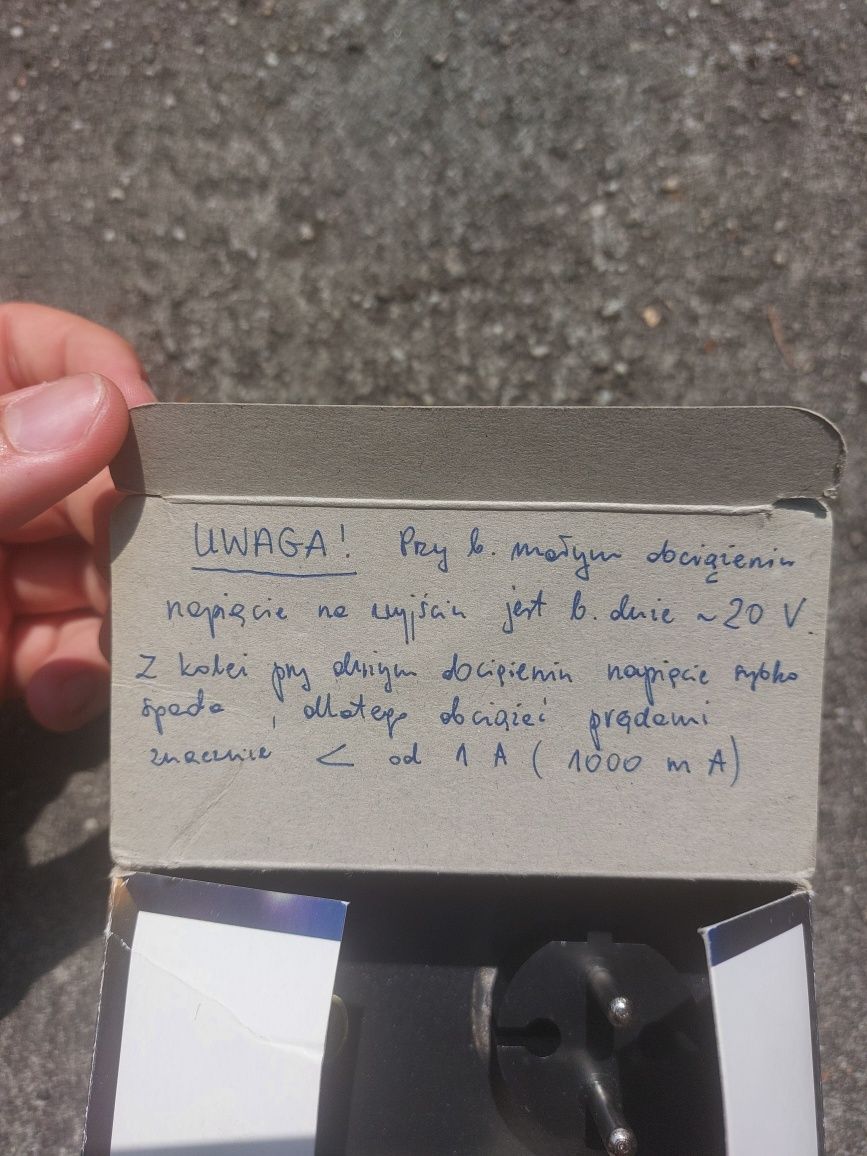 UWAGA! Przy b. małym obciążeniu
napięcie na wyjściu jest b. duże ~20 V.
Z kolei przy dużym obciążeniu napięcie szybko
spada, dlatego obciążać prądami
znacznie < od 1 A (1000 mA)